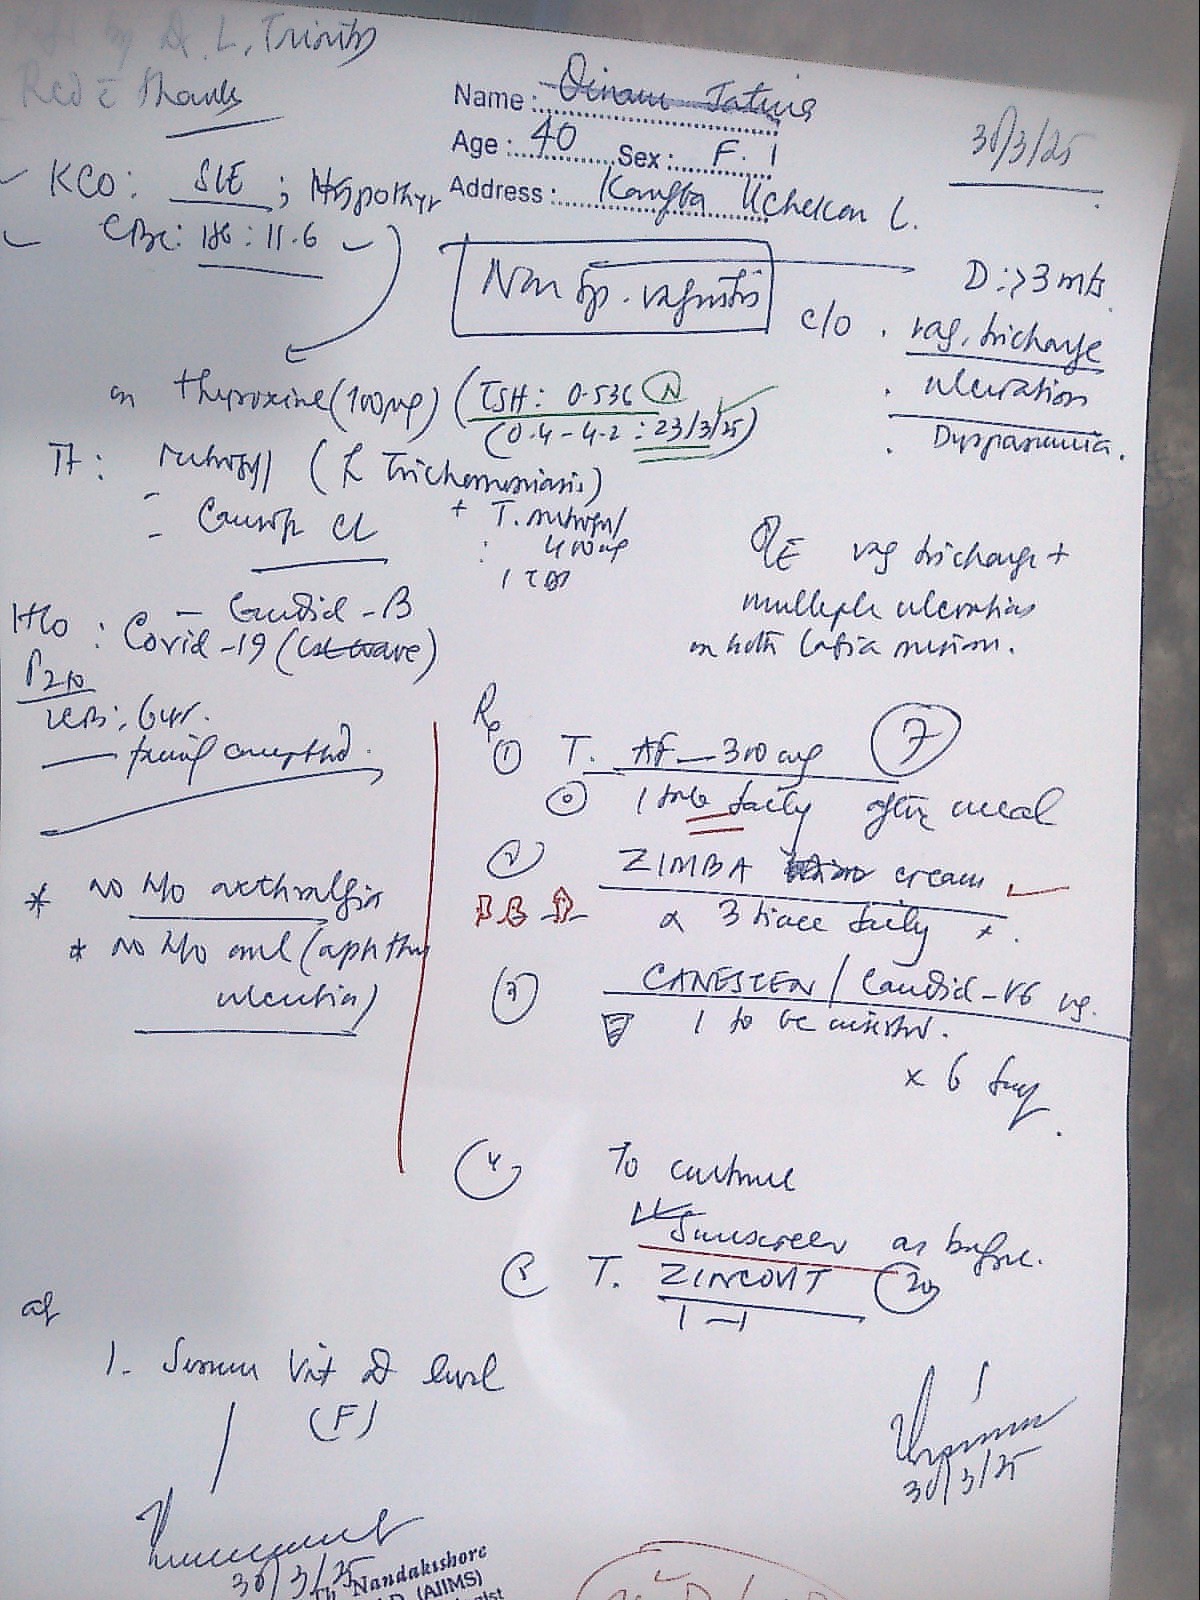 Refd by Dr. L. Trinity
Recd c̄ thanks
Name : Oinam
Age : 40 Sex : F.
Address : Kangla Uchekon L.
30/3/25
KCO: SLE ; Hypothyr
CBC: Hb : 11.6
Non sp. vaginitis
D: >3 mts
c/o . vag. discharge
. ulceration
. Dyspareunia.
on thyroxine (100µg) (TSH: 0.536 N
(0.4-4.2 : 23/3/25)
Tt: Metrogyl (L Trichomoniasis)
- Cansoft CL
+ T. metrogyl
400mg
1 TDS
- Candid-B
H/o : Covid-19 (1st wave)
P2+0
LCB: 6yr.
family completed.
O/E vag discharge +
multiple ulcerations
on both labia minora.
Rx
① T. AF-300 mg 7
1 tab daily after meal
② ZIMBA cream
3 time daily
③ CANESTEN / Candid-V6 vg.
1 to be inserted.
x 6 day
* no H/o arthralgia
* no H/o oral (aphthus
ulceration)
④ To continue
Sunscreen as before.
5 T. ZINCOVIT 20
1-1
af
1. Serum Vit D level
(F)
30/3/25
30/3/25
Th. Nandakishore
M.D. (AIIMS)